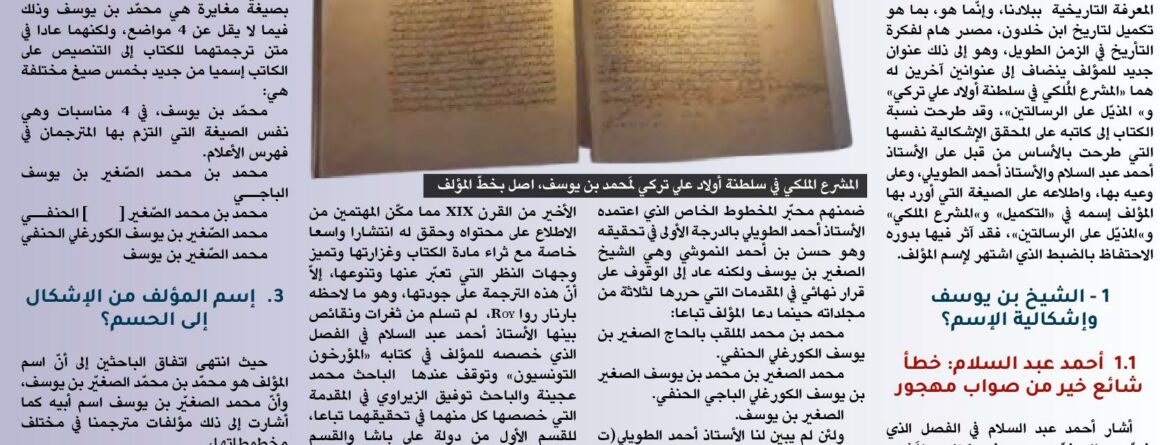 المعرفة التاريخية ببلادنا، وإنّما هو، بما هو
تكميل لتاريخ ابن خلدون، مصدر هام لفكرة
التأريخ في الزمن الطويل، وهو إلى ذلك عنوان
جديد للمؤلف ينضاف إلى عنوانين آخرين له
هما «المشرع المُلكي في سلطنة أولاد علي تركي»
و» المذيّل على الرسالتين»، وقد طرحت نسبة
الكتاب إلى كاتبه على المحقق الإشكالية نفسها
التي طرحت بالأساس من قبل على الأستاذ
أحمد عبد السلام والأستاذ أحمد الطويلي، وعلى
وعيه بها، واطلاعه على الصيغة التي أورد بها
المؤلف إسمه في «التكميل» و»المشرع الملكي»
و»المذيّل على الرسالتين»، فقد آثر فيها بدوره
الاحتفاظ بالضبط الذي اشتهر لإسم المؤلف.
1 - الشيخ بن يوسف
وإشكالية الإسم؟
1.1 أحمد عبد السلام: خطأ
شائع خير من صواب مهجور
أشار أحمد عبد السلام في الفصل الذي
المشرع الملكي في سلطنة أولاد علي تركي لمحمد بن يوسف، اصل بخطّ المؤلف
ضمنهم محبّر المخطوط الخاص الذي اعتمده
الأستاذ أحمد الطويلي بالدرجة الأولى في تحقيقه
وهو حسن بن أحمد النموشي وهي الشيخ
الصغير بن يوسف ولكنه عاد إلى الوقوف على
قرار نهائي في المقدمات التي حررها لثلاثة من
مجلداته حينما دعا المؤلف تباعا:
محمد بن محمد الملقب بالحاج الصغير بن
يوسف الكورغلي الحنفي.
محمد الصغير بن محمد بن يوسف الصغير
بن يوسف الكورغلي الباجي الحنفي.
الصغير بن يوسف.
ولئن لم يبين لنا الأستاذ أحمد الطويلي(ت
الأخير من القرن XIX مما مكّن المهتمين من
الاطلاع على محتواه وحقق له انتشارا واسعا
خاصة مع ثراء مادة الكتاب وغزارتها وتميز
وجهات النظر التي تعبّر عنها وتنوعها، إلاّ
أنّ هذه الترجمة على جودتها، وهو ما لاحظه
بارنار روا ROY، لم تسلم من ثغرات ونقائص
بينها الأستاذ أحمد عبد السلام في الفصل
الذي خصصه للمؤلف في كتابه «المؤرخون
التونسيون» وتوقف عندها الباحث محمد
عجينة والباحث توفيق الزيراوي في المقدمة
التي خصصها كل منهما في تحقيقهما تباعا،
للقسم الأول من دولة علي باشا والقسم
بصيغة مغايرة هي محمّد بن يوسف وذلك
فيما لا يقل عن 4 مواضع، ولكنهما عادا في
متن ترجمتهما للكتاب إلى التنصيص على
الكاتب إسميا من جديد بخمس صيغ مختلفة
هي:
محمّد بن يوسف، في 4 مناسبات وهي
نفس الصيغة التي التزم بها المترجمان في
فهرس الأعلام.
محمد بن محمد الصّغير بن يوسف
الباجــي
محمد بن محمد الصّغير [ ] الحنفـــي
محمد الصّغير بن يوسف الكورغلي الحنفي
محمد الصّغير بن يوسف
3. إسم المؤلف من الإشكال
إلى الحسم؟
حيث انتهى اتفاق الباحثين إلى أنّ اسم
المؤلف هو محمّد بن محمّد الصغيّر بن يوسف،
وأنّ محمد الصغيّر بن يوسف اسم أبيه كما
أشارت إلى ذلك مؤلفات مترجمنا في مختلف
مخطوطاتها،